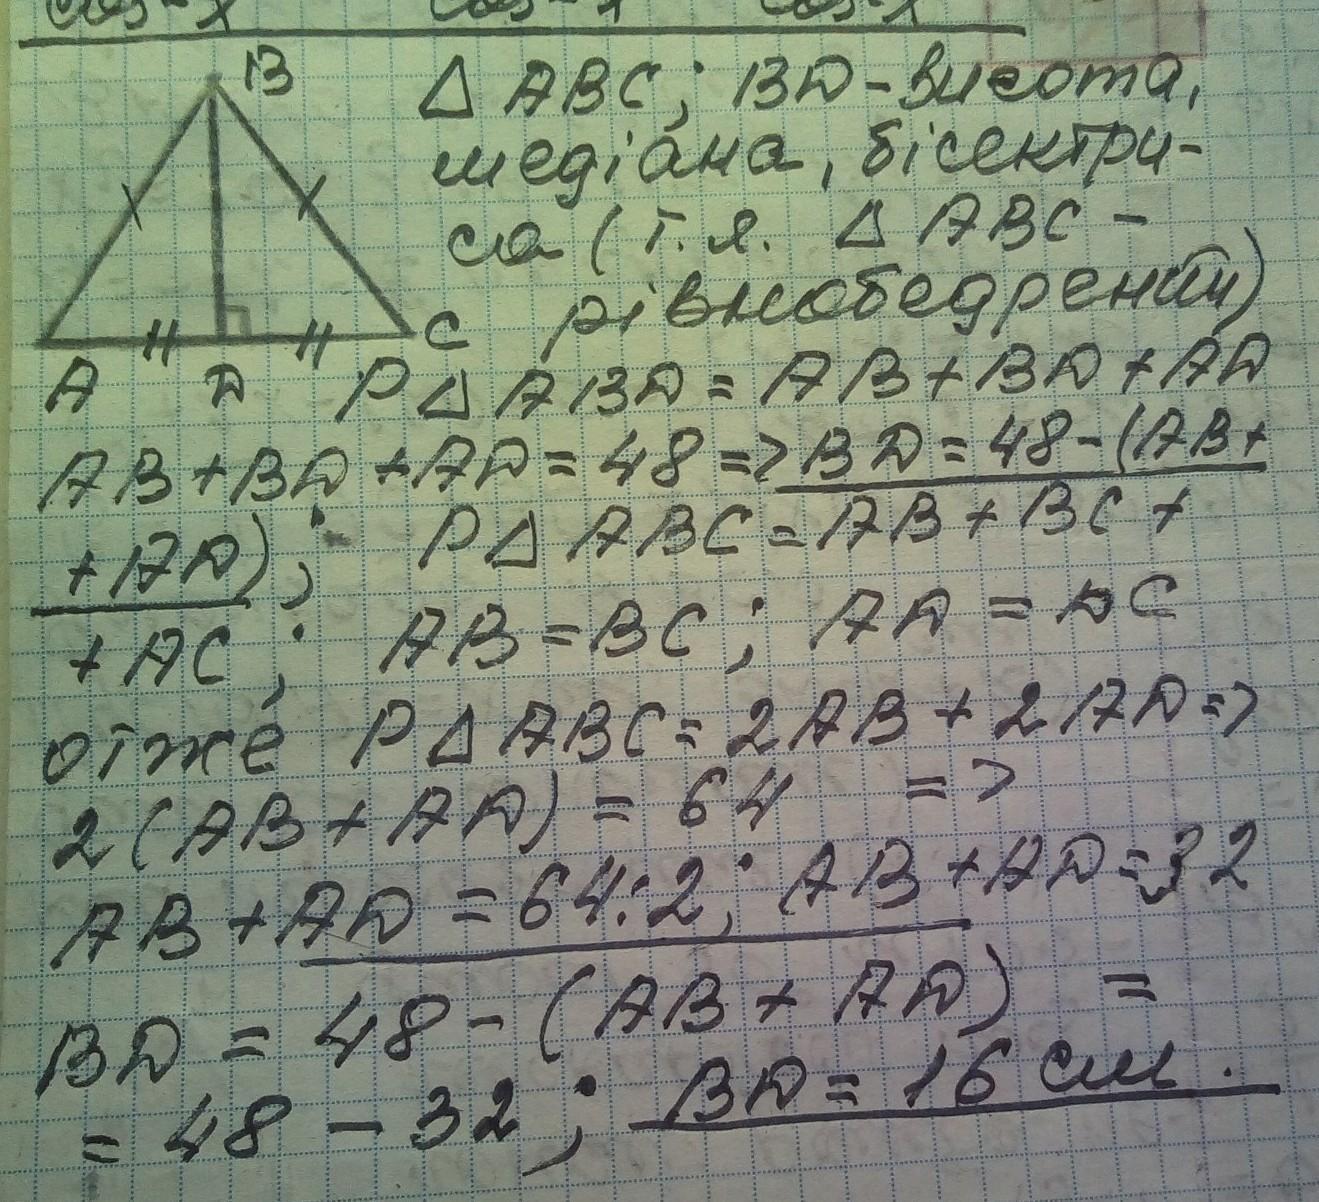 B
Δ ABC; BD - висота,
медіана, бісектри-
са (т.я. Δ ABC -
рівнобедрений)
C
A D
P Δ ABD = AB + BD + AD
AB + BD + AD = 48 => BD = 48 - (AB +
+ AD); P Δ ABC = AB + BC +
+ AC; AB = BC; AD = DC
отже P Δ ABC = 2AB + 2AD =>
2(AB + AD) = 64 =>
AB + AD = 64:2; AB + AD = 32
BD = 48 - (AB + AD) =
= 48 - 32; BD = 16 см.